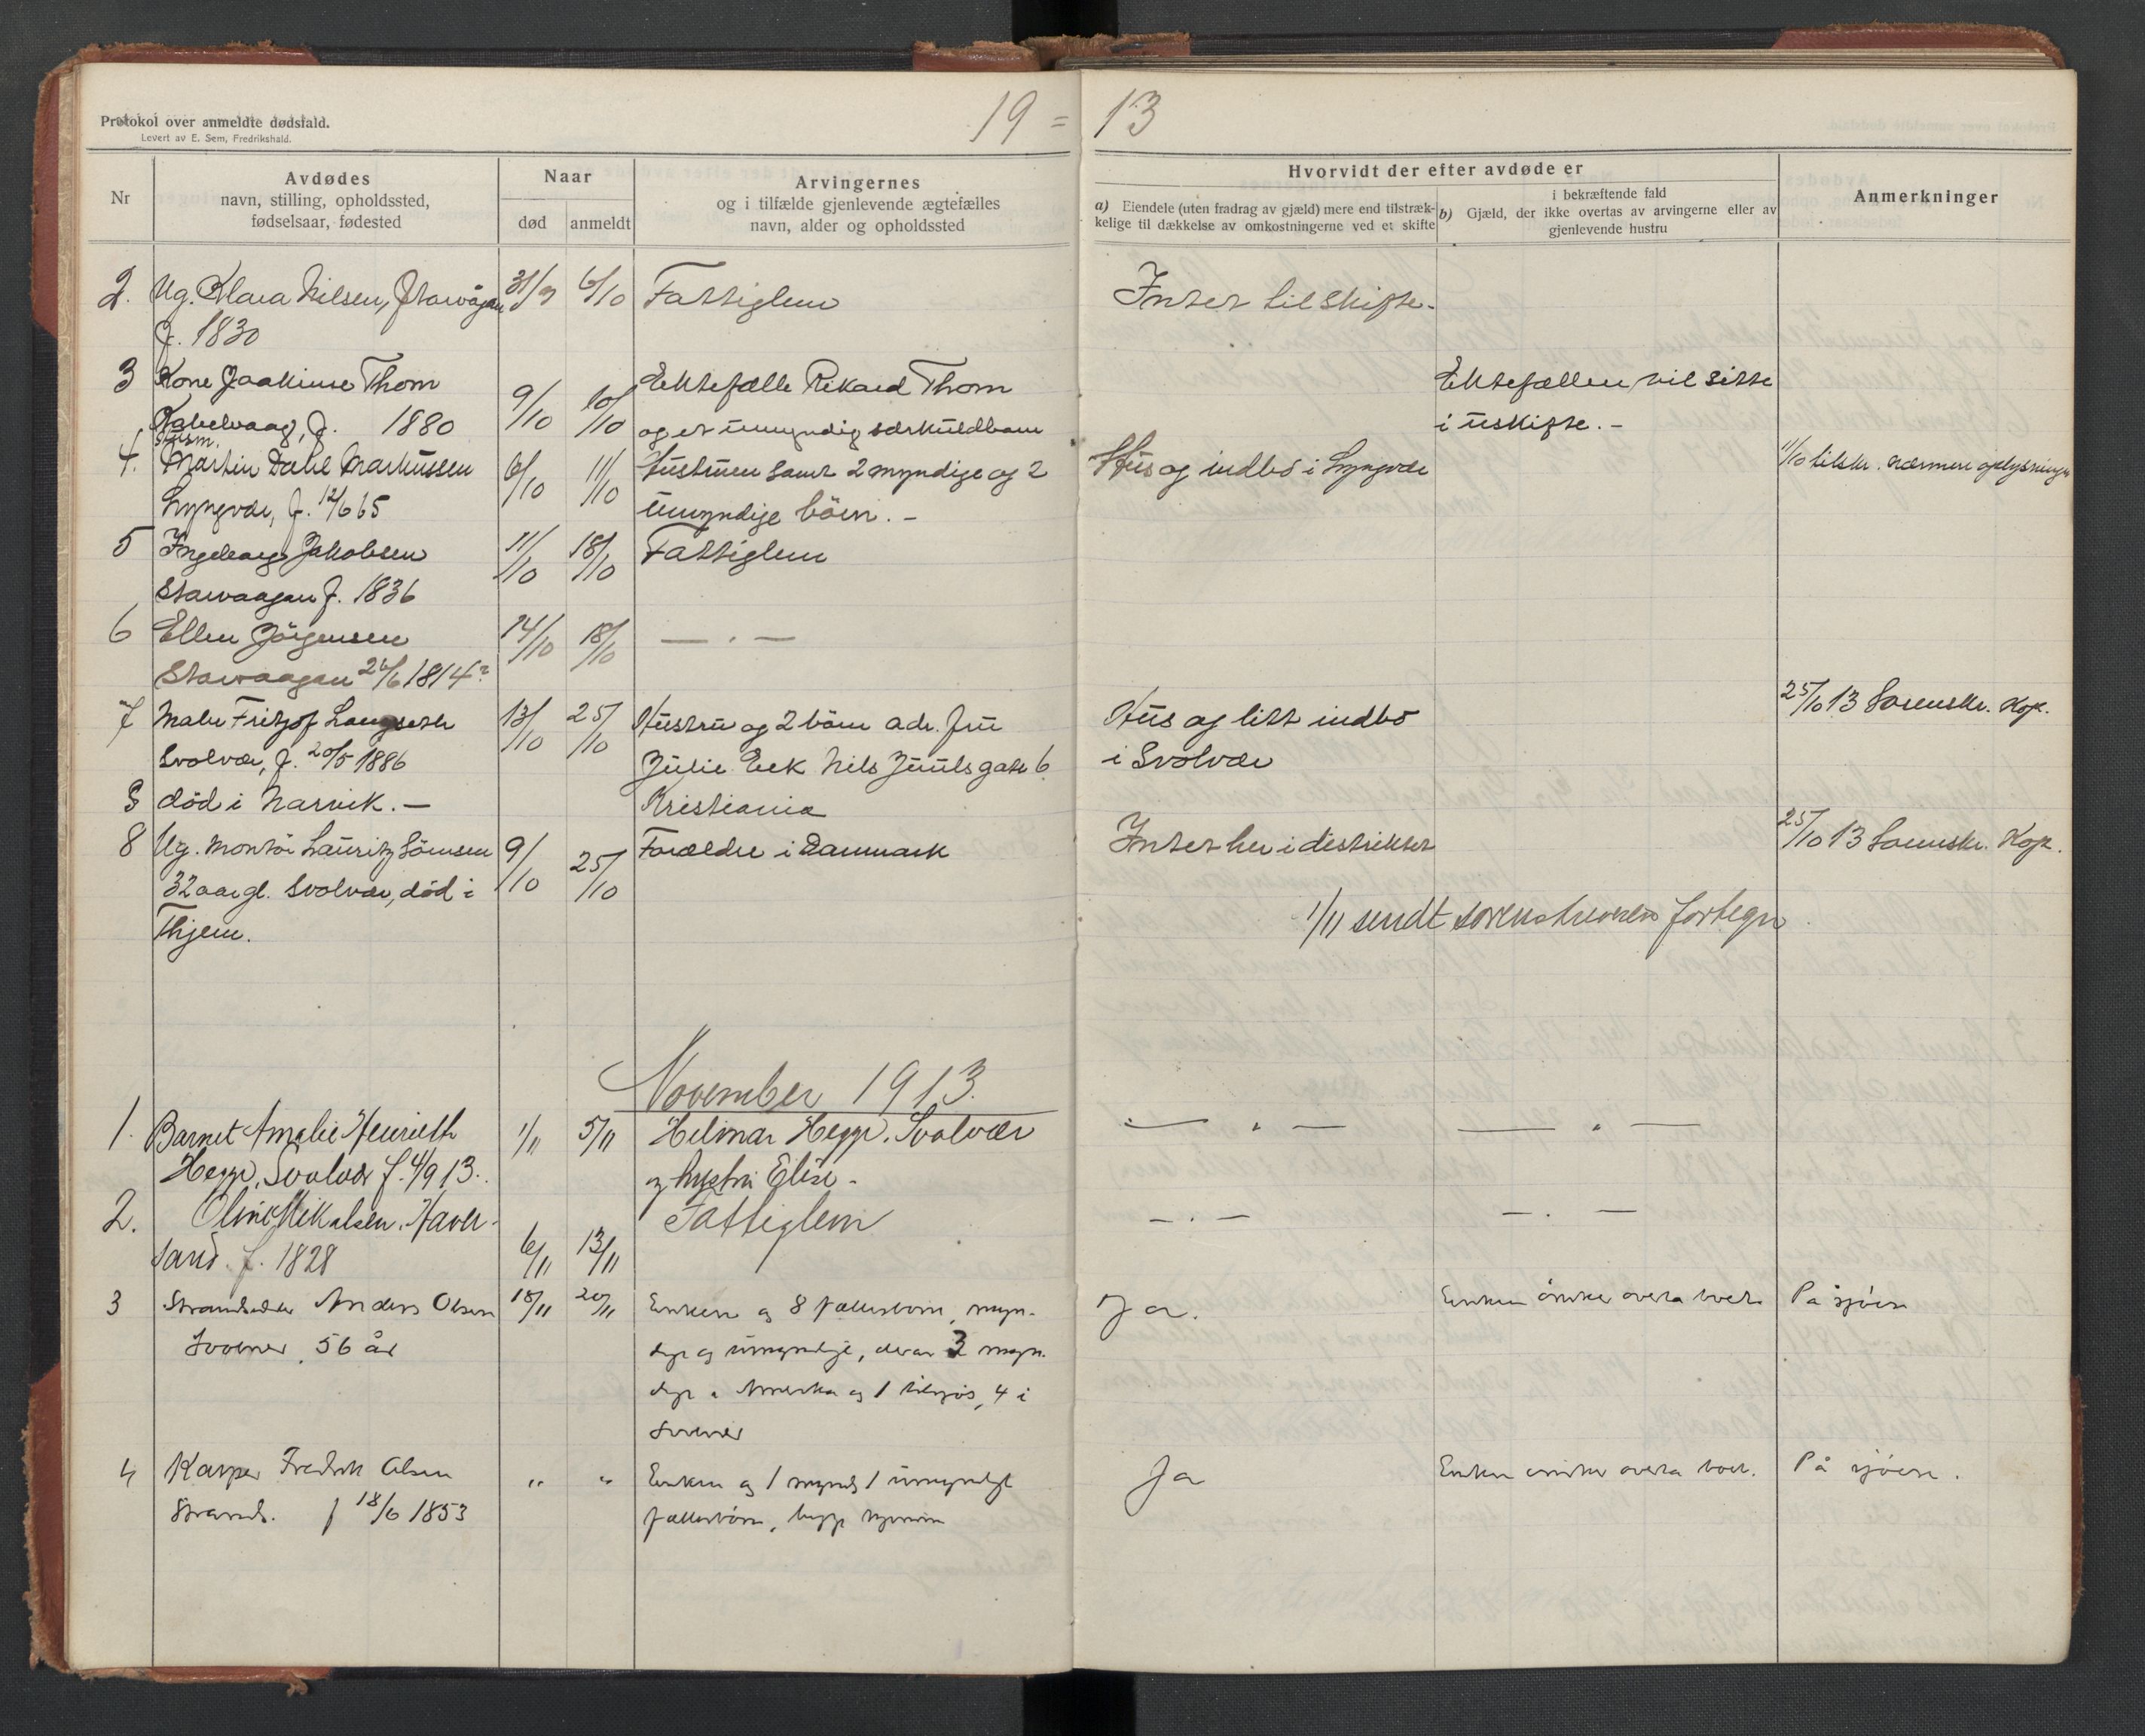 Protokol over anmeldte dødsfald.
Levert av E. Sem, Fredrikshald.
19 = 13
Nr
Avdødes
navn, stilling, opholdssted,
fødselsaar, fødested
Naar
død
anmeldt
Arvingernes
og i tilfælde gjenlevende ægtefælles
navn, alder og opholdssted
Hvorvidt der efter avdøde er
a) Eiendele (uten fradrag av gjæld) mere end tilstræk-
kelige til dækkelse av omkostningerne ved et skifte
i bekræftende fald
b) Gjæld, der ikke overtas av arvingerne eller av
gjenlevende hustru
Anmerkninger
2. Ug. Klara Nilsen, Storvågan 31/9 6/10 Fattiglem Intet til skifte.
f. 1830
3 Kone Joakime Thom 9/10 10/10 Ektefælle Rikard Thom Ektefællen vil sitte
Kabelvaag, f. 1880 og et umyndig særkuldbarn i uskifte. -
Husm.
4. Martin Dahl Markussen 6/10 11/10 Hustruen samt 2 myndige og 2 Hus og indbo i Lyngvær 11/10 tilskr. nærmere oplysninger
Lyngvær, f. 12/6 65 umyndige börn. -
5 Ingeborg Jakobsen 11/10 18/10 Fattiglem
Storvaagan f. 1836
6 Ellen Jörgensen 14/10 18/10 — . —
Storvaagan 26/6 1814?
7 Maler Fritjof Langseth 13/10 25/10 Hustru og 2 börn adr. fru Hus og litt indbo 25/10 13 Sorenskr. Kop.
Svolvær, f. 20/5 1886 Julie Eek Nils Juulsgate 6 i Svolvær
8 död i Narvik. — Kristiania
8 Ug. montör Lauritz Sörnsen 9/10 25/10 Forældre i Danmark Intet her i distriktet 25/10 13 Sorenskr. Kop.
32 aar gl. Svolvær, död i
Thjem.
1/11 sendt sorenskriveren fortegn
November 1913.
1. Barnet Amalie Henrieth 1/11 5/11 Hilmar Hegge, Svolvær — " — — " —
Hegge, Svolvær f. 4/9 13. og hustru Elise -
2. Oline Mikalsen, Haver- 6/11 13/11 Fattiglem — . — — . —
sand. f. 1828
3 Strandsidder Anders Olsen 18/11 20/11 Enken og 8 fællesbörn, myn- Ja. Enken önsker overta boet. På sjöen
Svolvær, 56 år dige og umyndige, derav 3 myn-
dige i Amerika og 1 tilsjøs, 4 i
Svolvær
4 Kasper Fredrik Olsen " " Enken og 1 myndig 1 umyndigt Ja Enken önsker overta boet. På sjöen.
Strands. f 18/6 1853 fællesbörn, begge hjemme